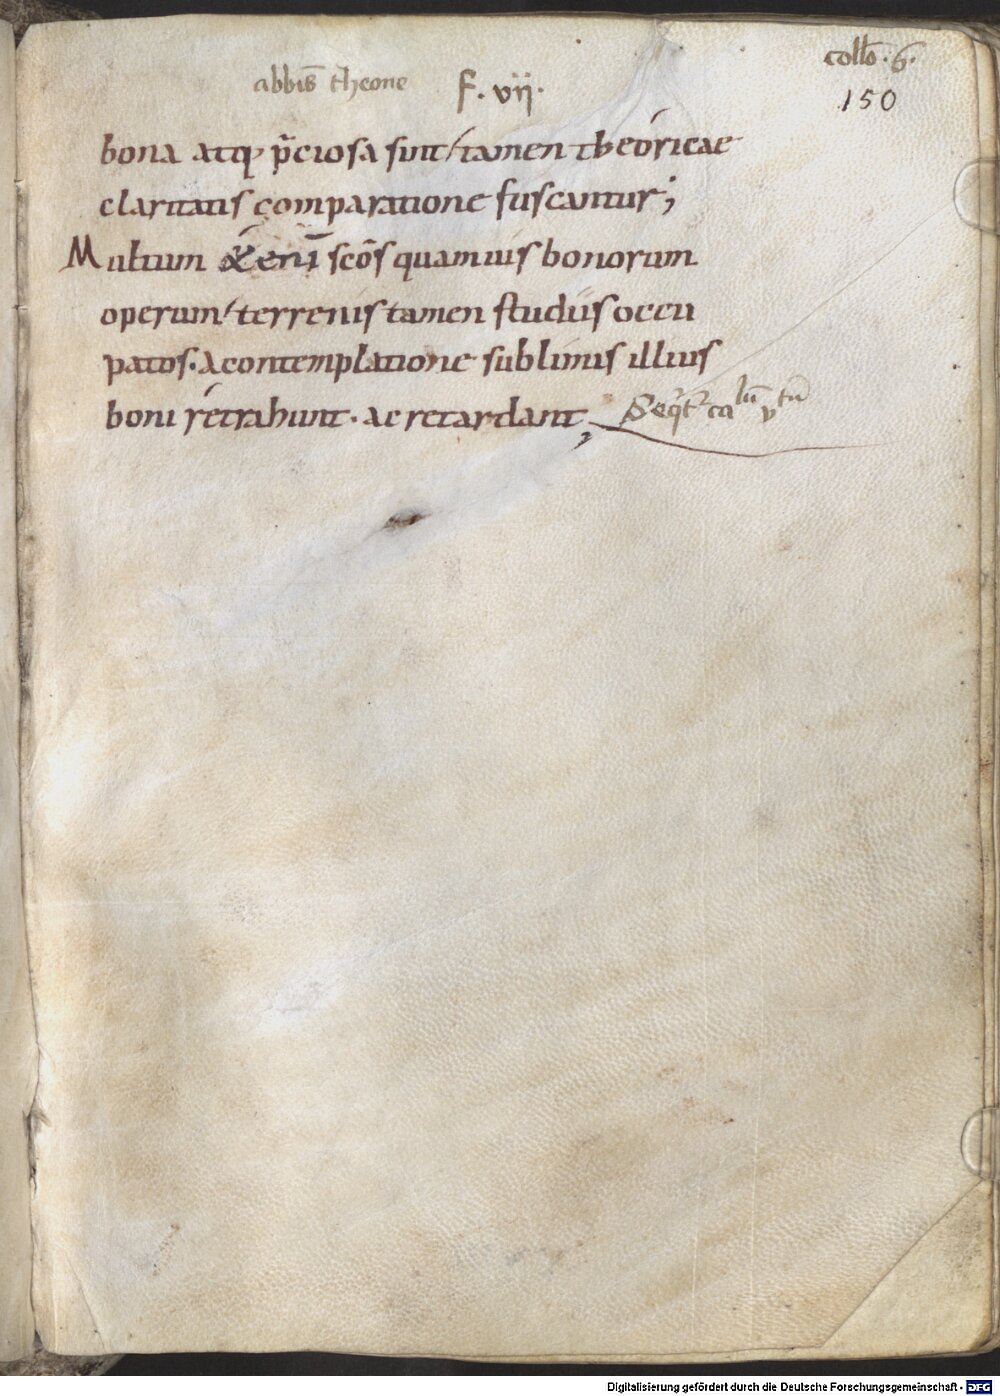 collō · 6 ·
abbis theone F. vii.
150
bona atq; p̄ciosa sint / tamen theoricae
claritatis comparatione fuscantur;
Multum & enī scōs quamuis bonorum
operum / terrenis tamen studiis occu
patos · a contemplatione sublimis illius
boni retrahunt · ac retardant,
Digitalisierung gefördert durch die Deutsche Forschungsgemeinschaft - DFG